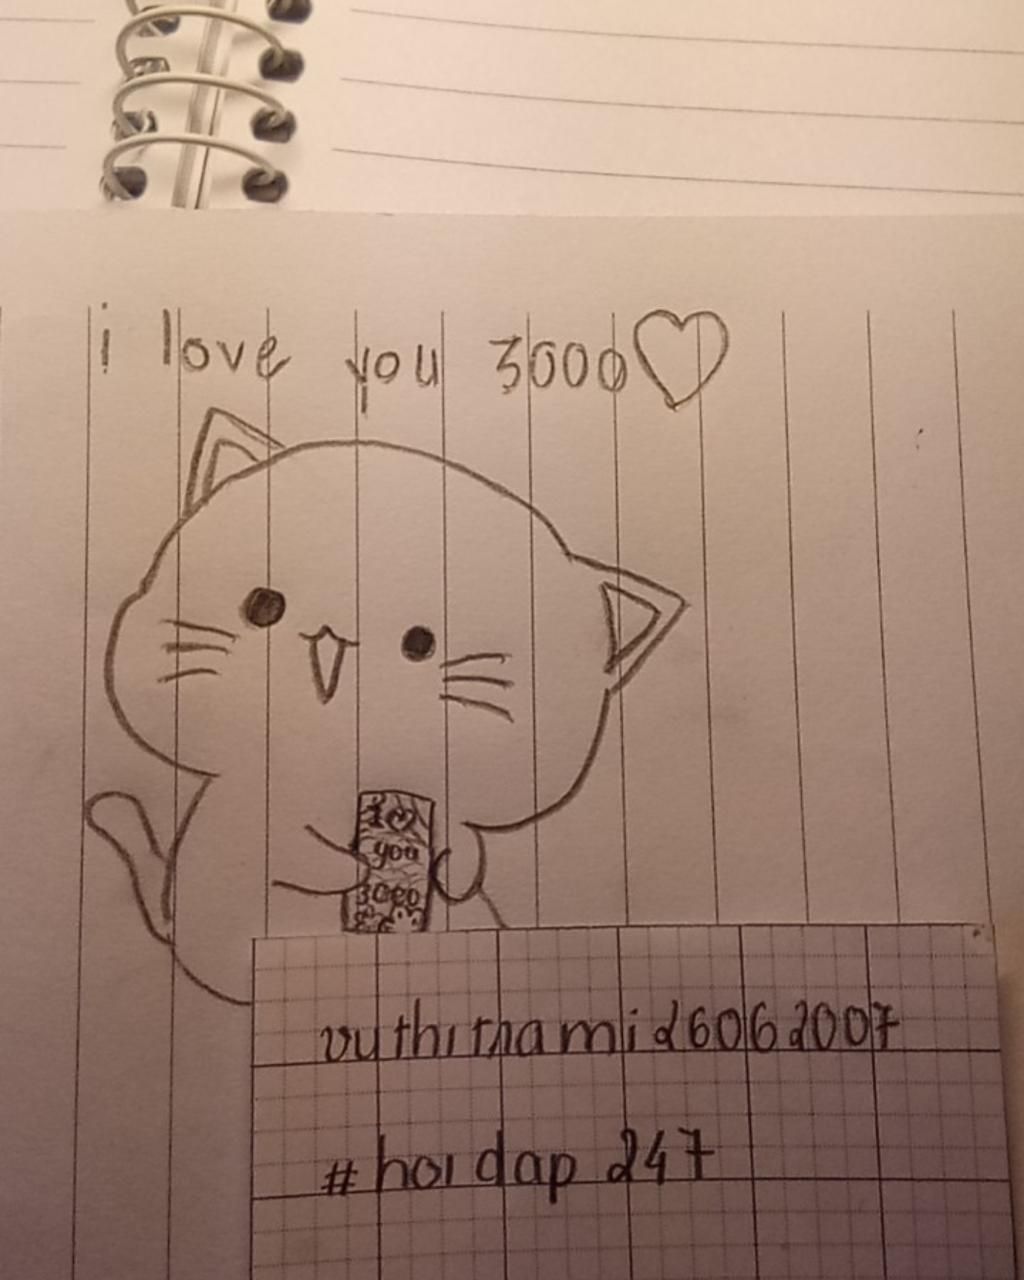 i love you 3000
I
you
3000
vuthithami26062007
#hoidap 247